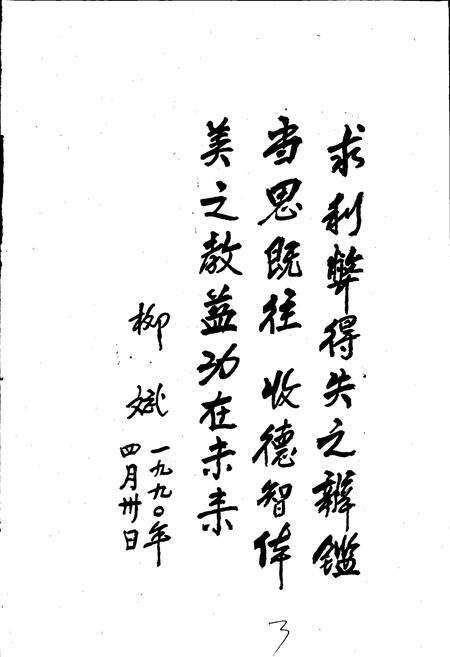 求利弊得失之辨鉴
当思既往 收德智体
美之教益功在未来
柳斌
一九九〇年
四月卅日
3